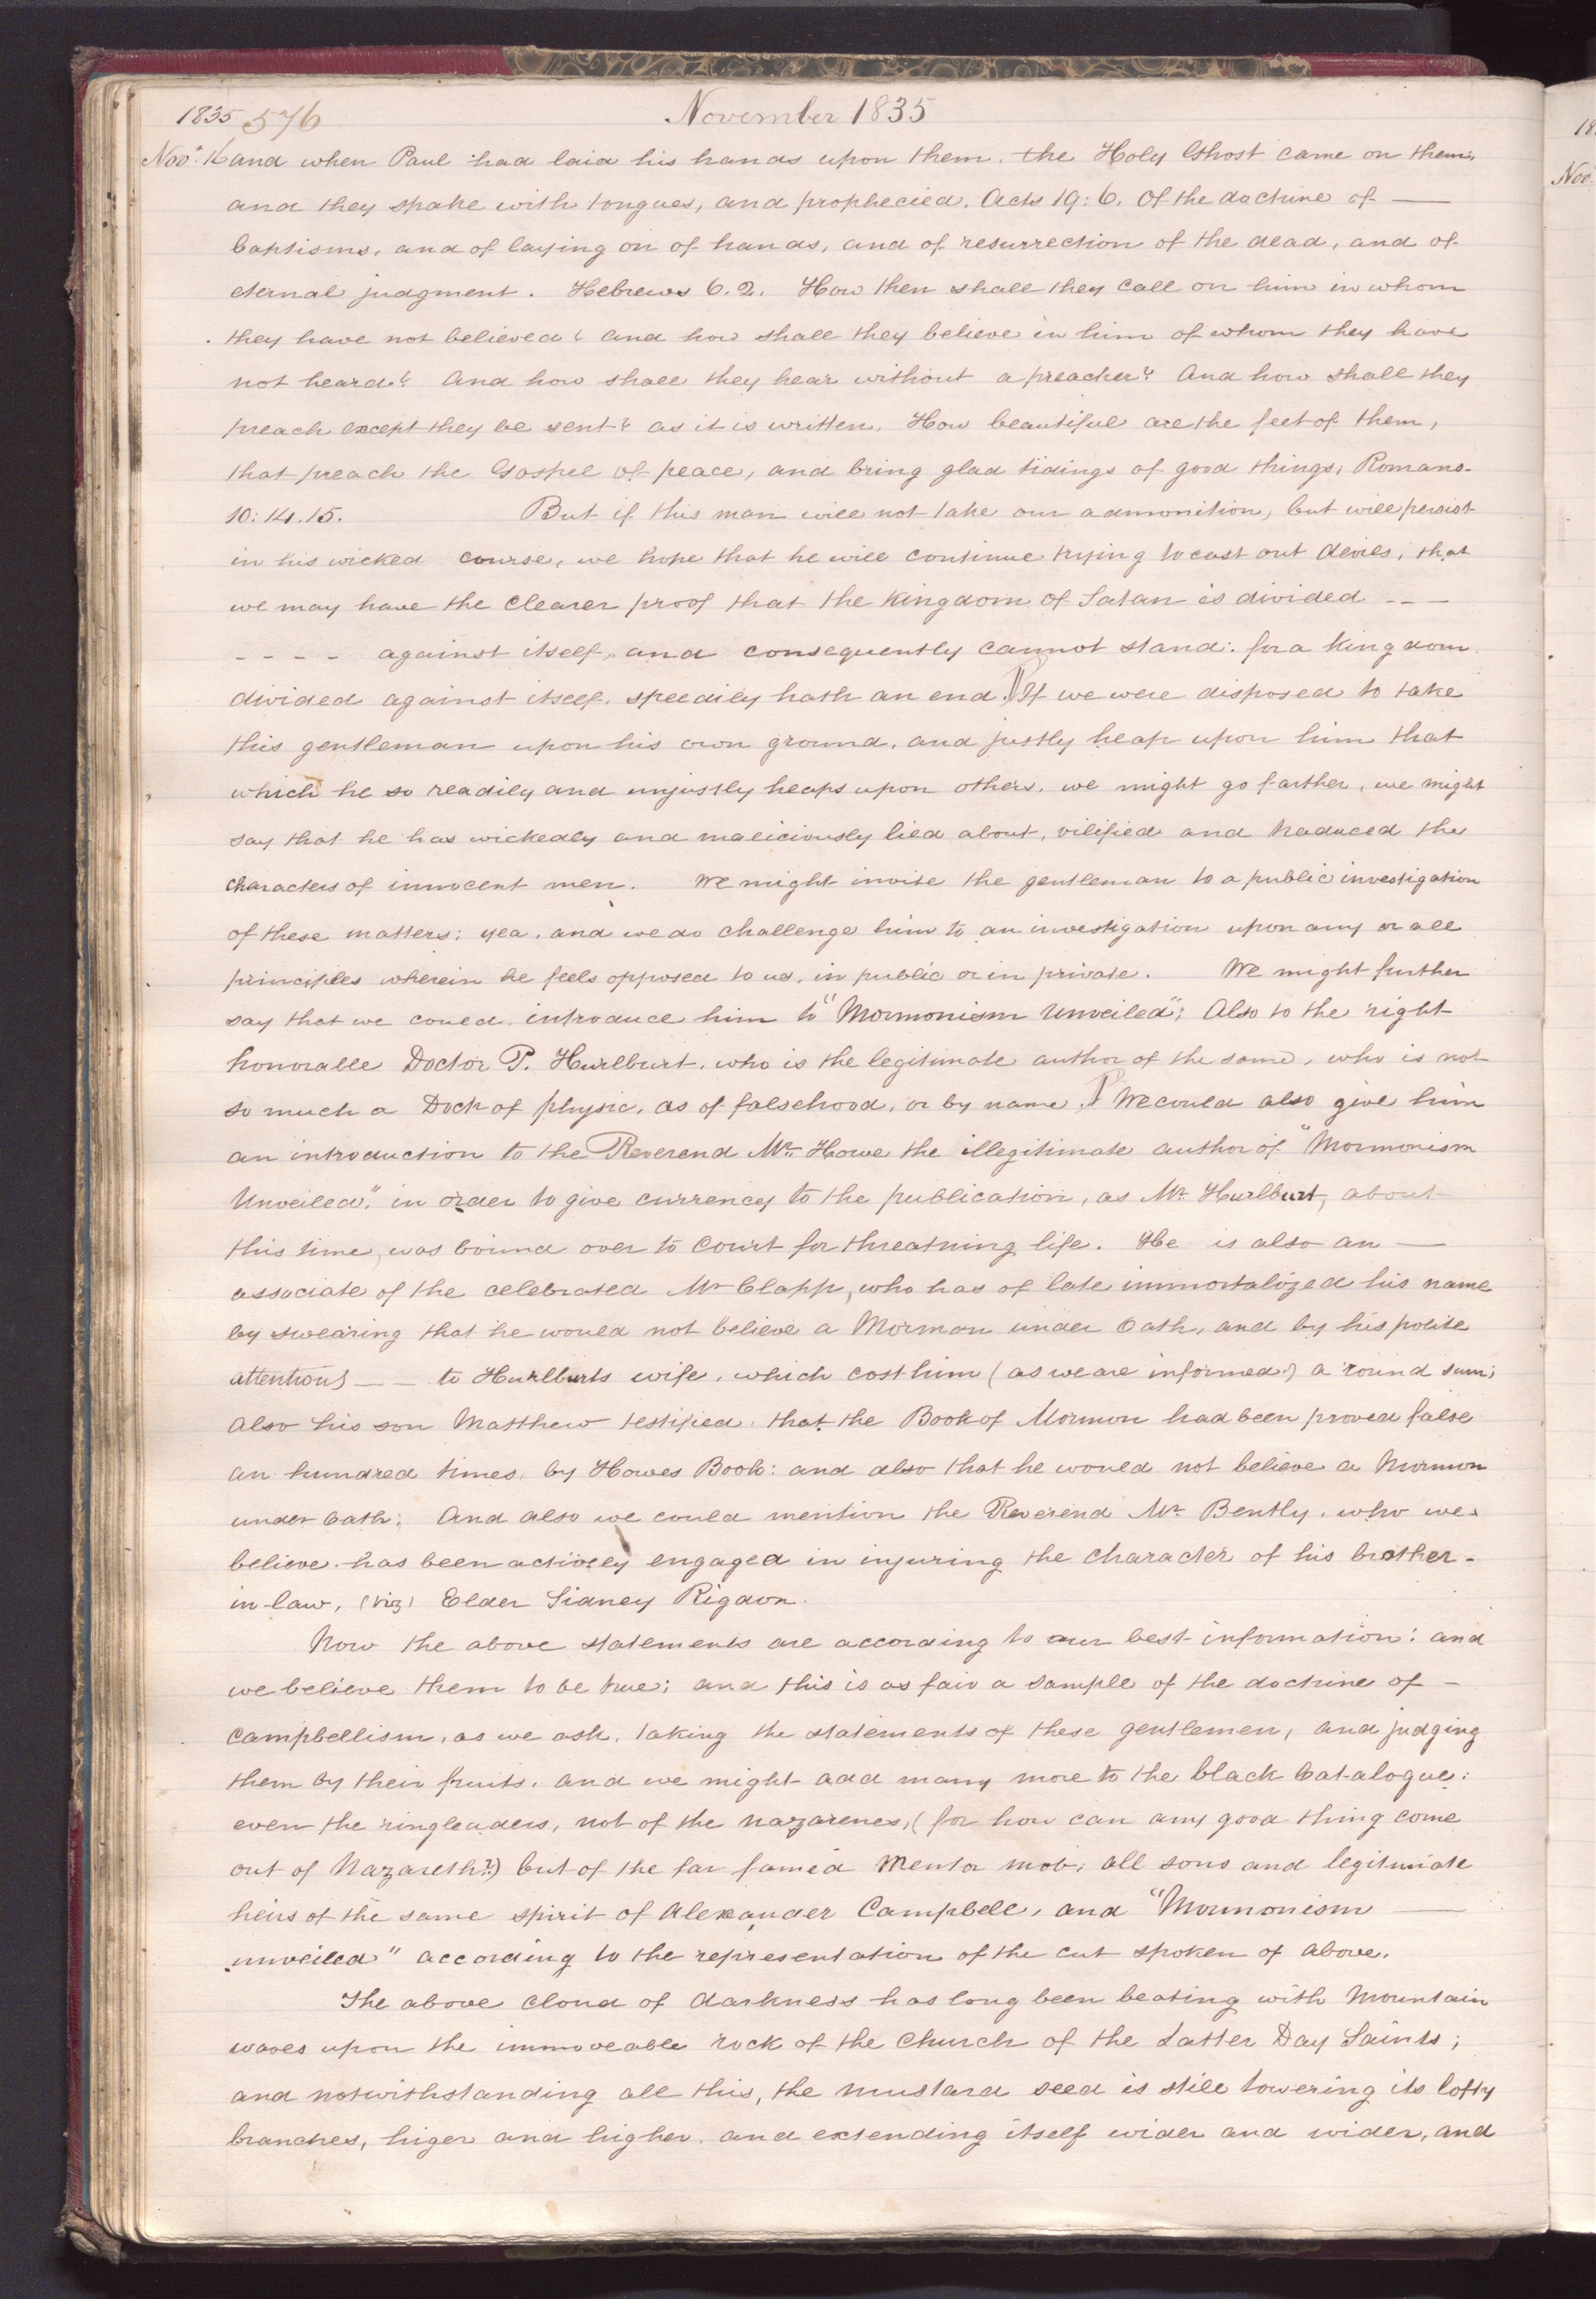 1835 576 November 1835
Nov.r 16 and when Paul had laid his hands upon them. the Holy Ghost came on them,
and they spake with tongues, and prophecied. Acts 19: 6. Of the doctrine of —
baptisms, and of laying on of hands, and of resurrection of the dead, and of
eternal judgment. Hebrews 6. 2. How then shall they call on him in whom
they have not believed? and how shall they believe in him of whom they have
not heard? And how shall they hear without a preacher? And how shall they
preach except they be sent? as it is written. How beautiful are the feet of them,
that preach the Gospel of peace, and bring glad tidings of good things, Romans.
10: 14. 15. But if this man will not take our admonition, but will persist
in his wicked course, we hope that he will continue trying to cast out devils, that
we may have the clearer proof that the kingdom of Satan is divided - - —
- - - - against itself, and consequently cannot stand: for a kingdom
divided against itself. speedily hath an end. ¶ If we were disposed to take
this gentleman upon his own ground, and justly heap upon him that
which he so readily and unjustly heaps upon others. we might go farther, we might
say that he has wickedly and maliciously lied about, vilified and traduced the
characters of innocent men. We might invite the gentleman to a public investigation
of these matters; yea, and we do challenge him to an investigation upon any or all
principles wherein he feels opposed to us, in public or in private. We might further
say that we could introduce him to "Mormonism Unveiled"; Also to the right
honorable Doctor P. Hurlburt, who is the legitimate author of the same, who is not
so much a Doctr of physic, as of falsehood, or by name. ¶ We could also give him
an introduction to the Reverend Mr. Howe the illegitimate author of "Mormonism
Unveiled," in order to give currency to the publication, as Mr. Hurlburt, about
this time, was bound over to Court for threatning life. He is also an —
associate of the celebrated Mr Clapp, who has of late immortalized his name
by swearing that he would not believe a Mormon under Oath, and by his polite
attentions — — to Hurlburts wife, which cost him (as we are informed) a round sum;
Also his son Matthew testified, that the Book of Mormon had been proved false
an hundred times, by Howes Book: and also that he would not believe a Mormon
under Oath; And also we could mention the Reverend Mr. Bently, who we
believe has been actively engaged in injuring the character of his brother-
in-law, (viz) Elder Sidney Rigdon.
Now the above statements are according to our best information: and
we believe them to be true; and this is as fair a sample of the doctrine of —
Campbellism, as we ask, taking the statements of these gentlemen, and judging
them by their fruits. and we might add many more to the black Catalogue:
even the ringleaders, not of the nazarenes, (for how can any good thing come
out of Nazareth?) but of the far famed Mentor mob; all sons and legitimate
heirs of the same spirit of Alexander Campbell, and "Mormonism —
unveiled" according to the representation of the cut spoken of above.
The above cloud of darkness has long been beating with Mountain
waves upon the immoveable rock of the Church of the Latter Day Saints;
and notwithstanding all this, the mustard seed is still towering its lofty
branches, higer and higher, and extending itself wider and wider, and
18
Nov.